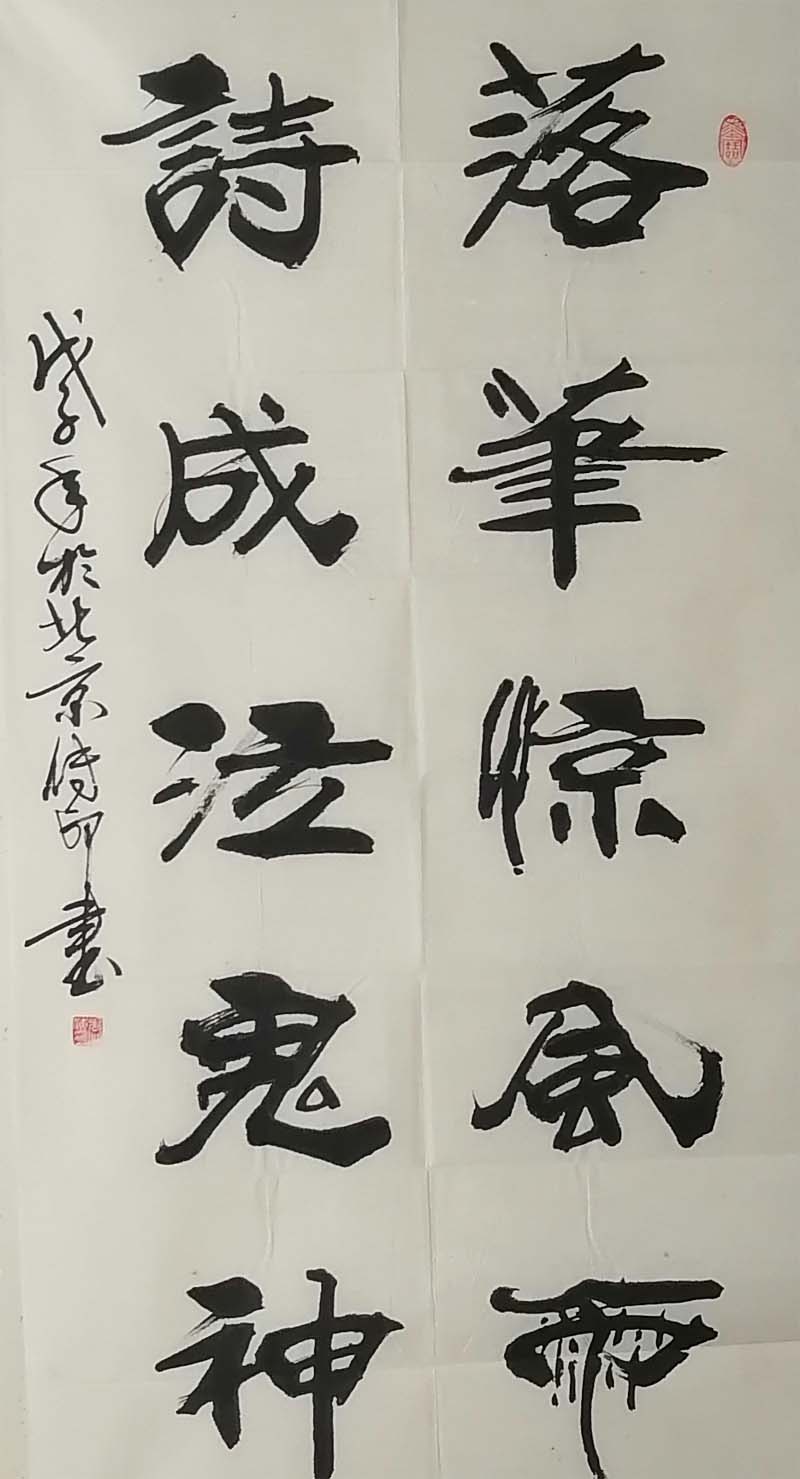 落筆惊風雨
詩成泣鬼神
戊子年於北京 书